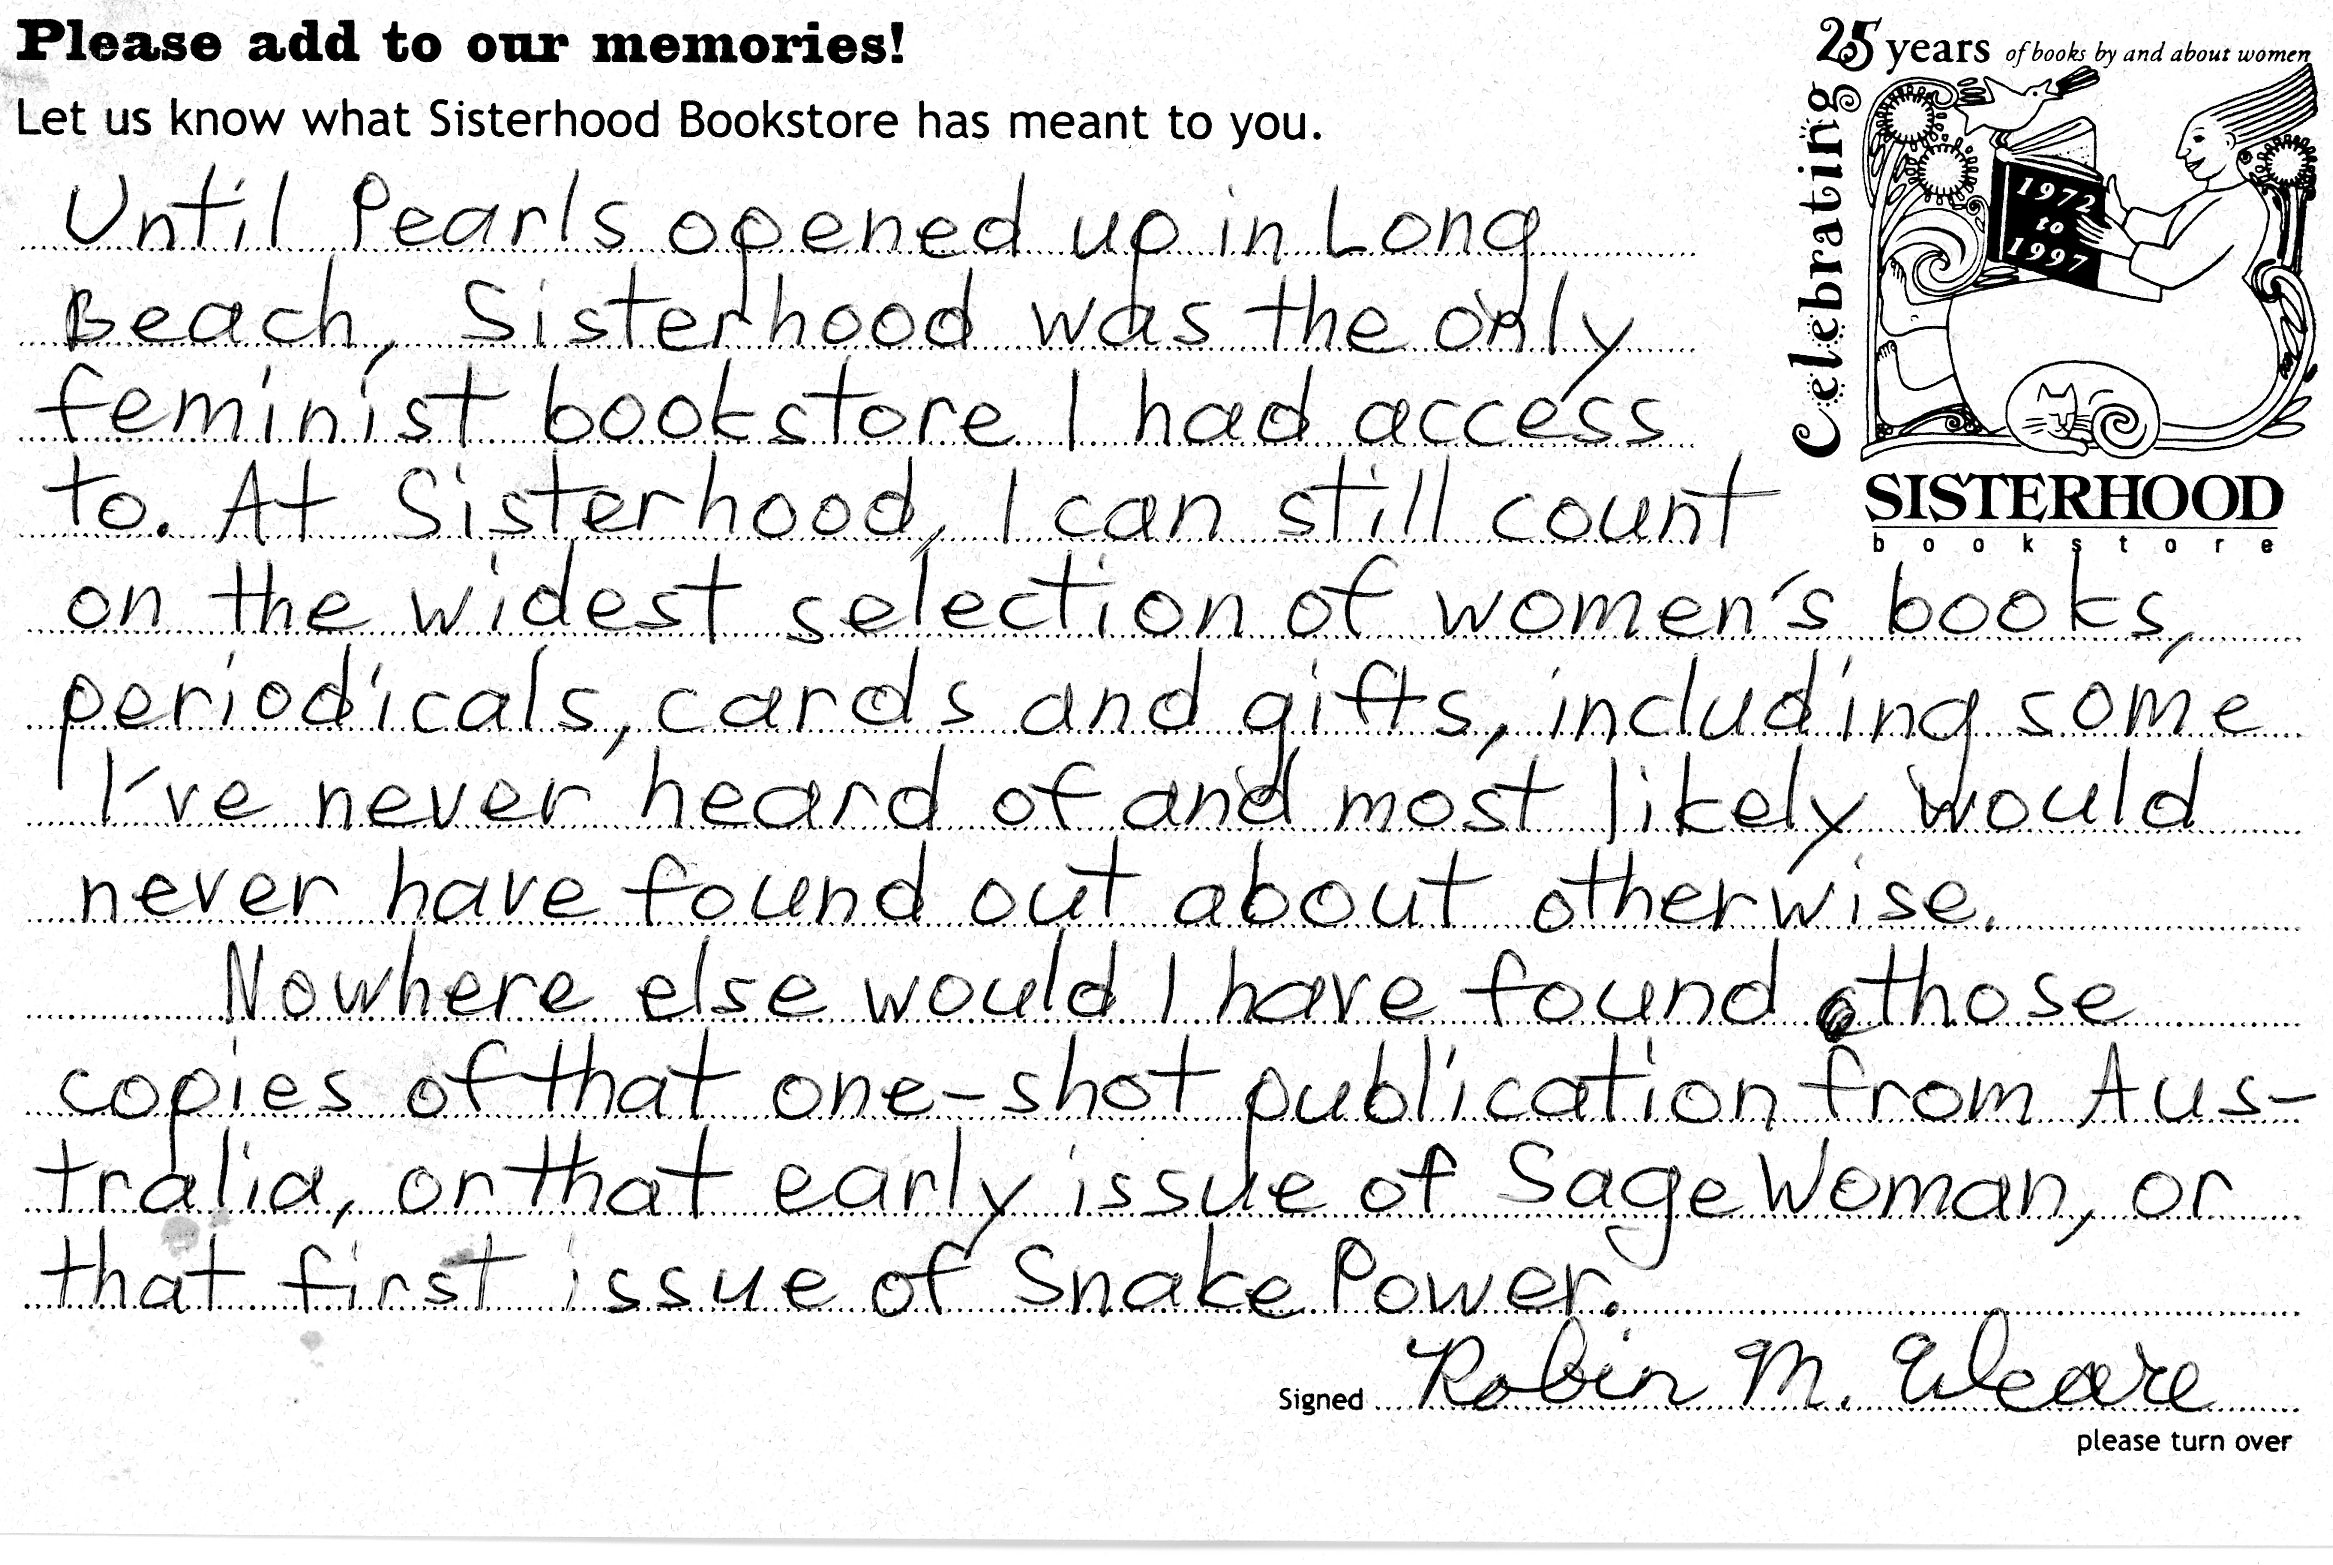 Please add to our memories!
Let us know what Sisterhood Bookstore has meant to you.
Celebrating
25 years of books by and about women
1972
to
1997
SISTERHOOD
bookstore
Until Pearls opened up in Long
Beach, Sisterhood was the only
feminist bookstore I had access
to. At Sisterhood, I can still count
on the widest selection of women's books,
periodicals, cards and gifts, including some
I've never heard of and most likely would
never have found out about otherwise.
Nowhere else would I have found those
copies of that one-shot publication from Aus-
tralia, or that early issue of SageWoman, or
that first issue of Snake Power.
Signed Robin M. Weare
please turn over